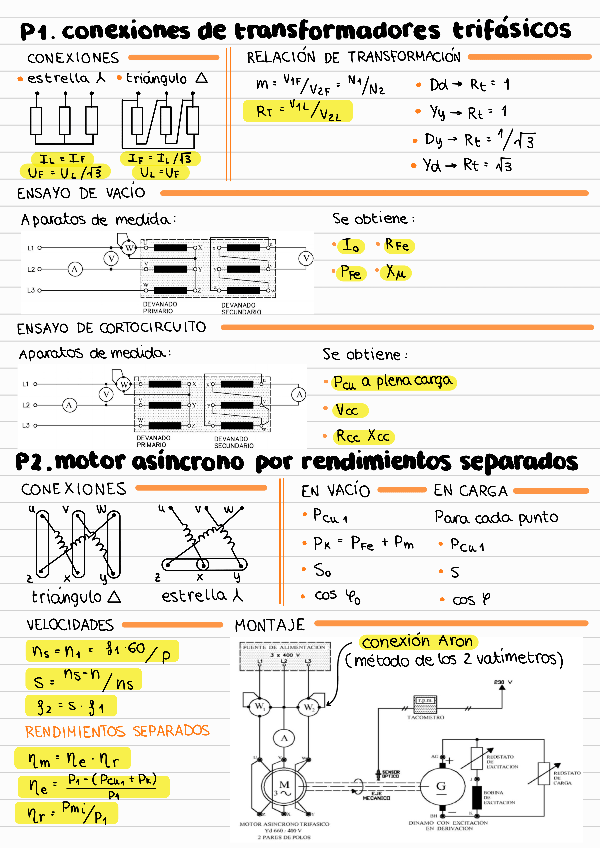 P1. conexiones de transformadores trifásicos
CONEXIONES
• estrella ⅄ • triángulo △
IL = IF
UF = UL/√3
IF = IL/√3
UL = UF
RELACIÓN DE TRANSFORMACIÓN
m = V1F/V2F = N1/N2
RT = V1L/V2L
• Dd → Rt = 1
• Yy → Rt = 1
• Dy → Rt = 1/√3
• Yd → Rt = √3
ENSAYO DE VACÍO
Aparatos de medida:
L1
L2
L3
A
V
W
U X
V Y
W Z
V
DEVANADO PRIMARIO
DEVANADO SECUNDARIO
Se obtiene:
• Io • RFe
• PFe • Xμ
ENSAYO DE CORTOCIRCUITO
Aparatos de medida:
L1
L2
L3
A
V
W
A
DEVANADO PRIMARIO
DEVANADO SECUNDARIO
Se obtiene:
• Pcu a plena carga
• Vcc
• Rcc Xcc
P2. motor asíncrono por rendimientos separados
CONEXIONES
u v w
z x y
triángulo △
u v w
z x y
estrella ⅄
EN VACÍO
• Pcu1
• PK = PFe + Pm
• So
• cos φ0
EN CARGA
Para cada punto
• Pcu1
• S
• cos φ
VELOCIDADES
ns = n1 = f1·60/p
S = ns-n/ns
f2 = s · f1
RENDIMIENTOS SEPARADOS
ηm = ηe · ηr
ηe = P1-(Pcu1 + PK)/P1
ηr = Pmi/P1
MONTAJE
conexión Aron
(método de los 2 vatímetros)
FUENTE DE ALIMENTACION
3 x 400 V
L1 L2 L3
W1
W2
A
M
3~
U V W
Z X Y
MOTOR ASINCRONO TRIFASICO
Yd 660 - 400 V
2 PARES DE POLOS
230 V
TACOMETRO
SENSOR OPTICO
EJE MECANICO
AG
G
BH
DINAMO CON EXCITACION
EN DERIVACION
REOSTATO DE EXCITACION
BOBINA DE EXCITACION
REOSTATO DE CARGA